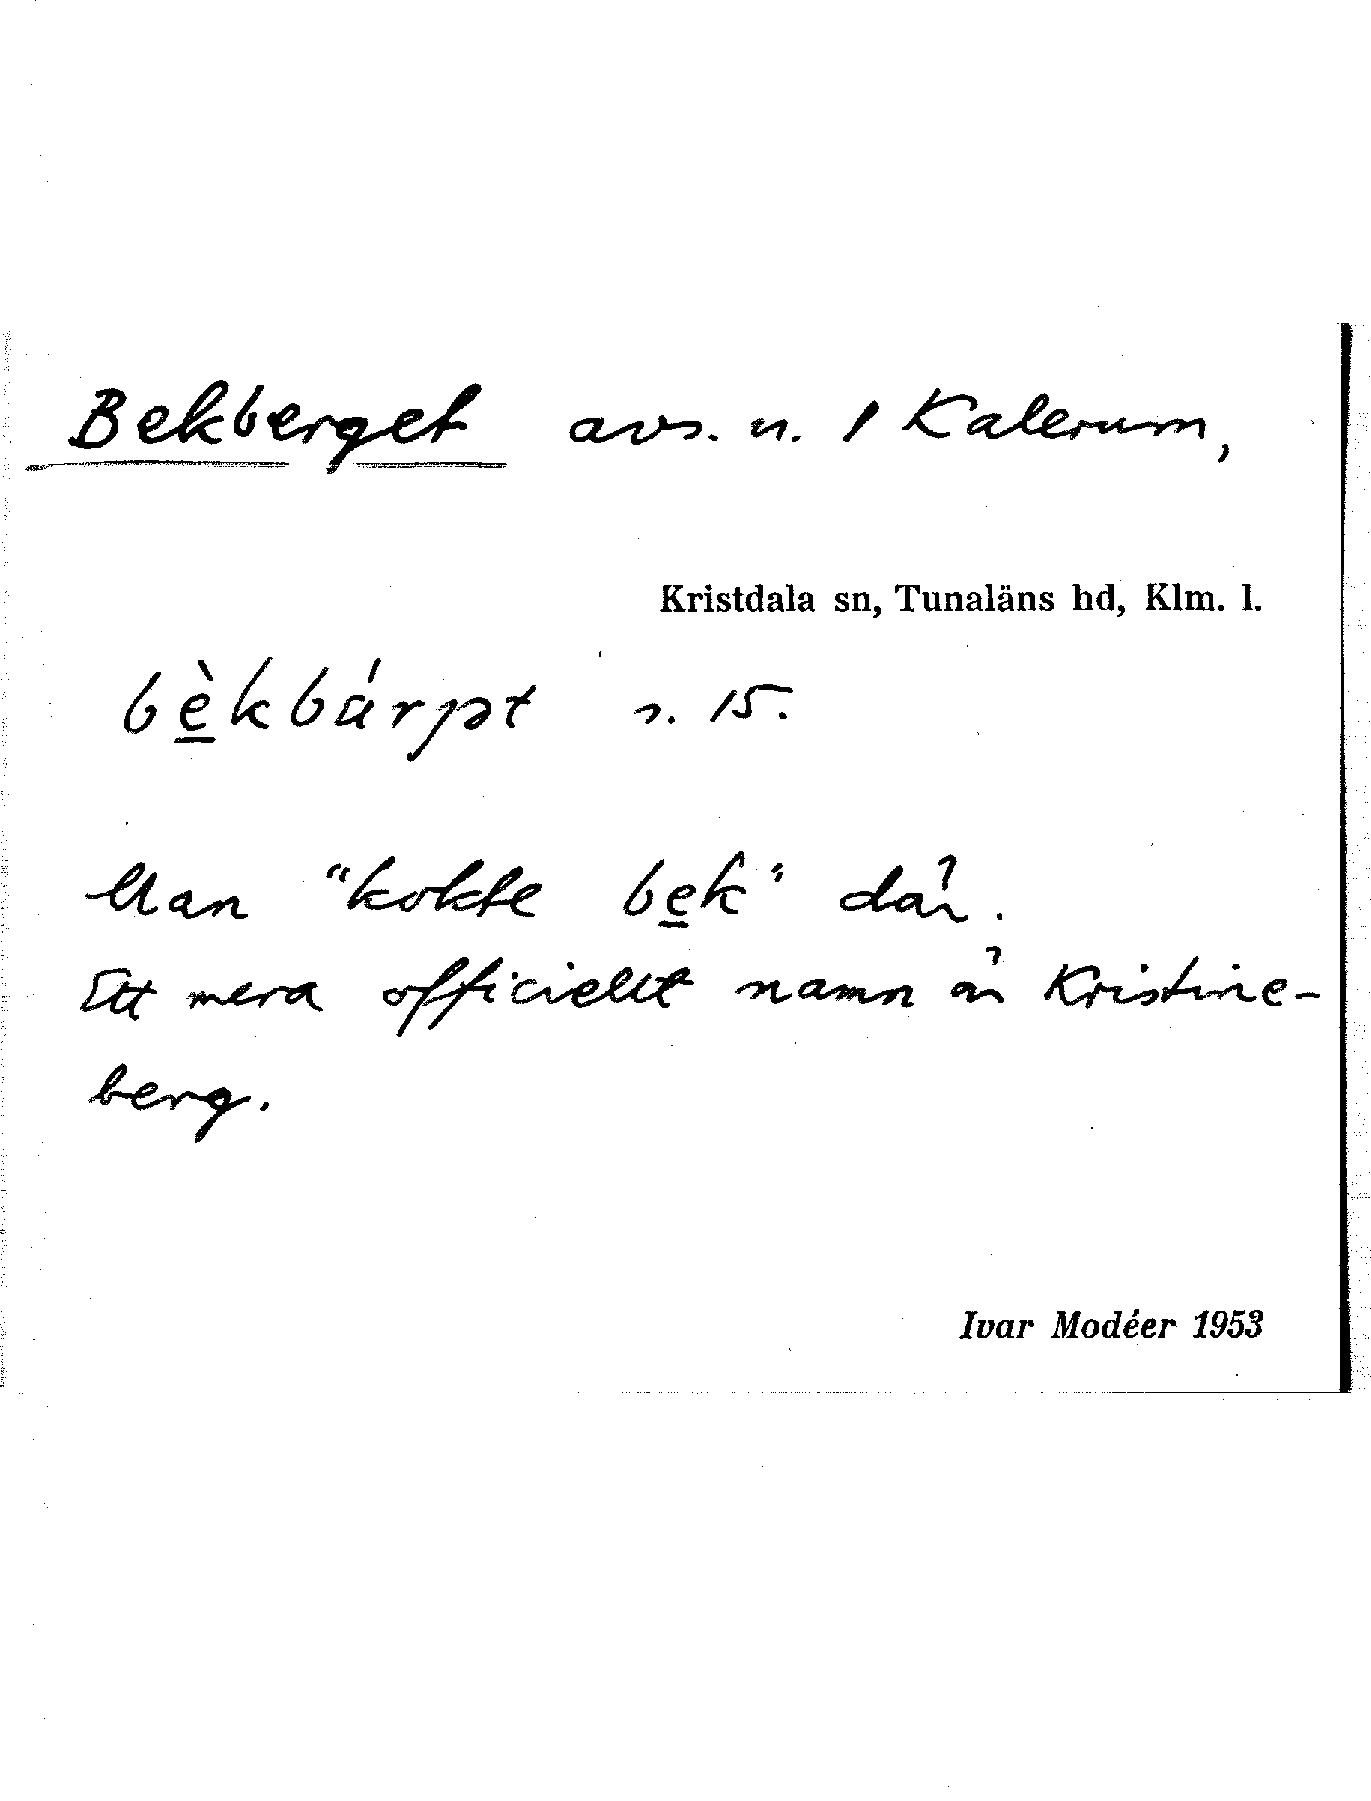 Bekberget avs. u. 1 Kalerum,
Kristdala sn, Tunaläns hd, Klm. l.
bèkbárjət s. 15.
Man "kokte bek" där.
Ett mera officiellt namn är Kristine-
berg.
Ivar Modéer 1953